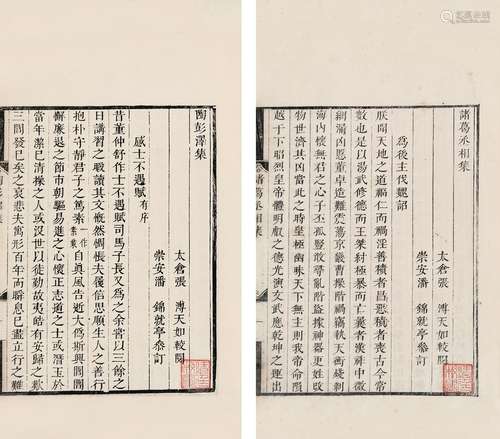 諸葛丞相集
太倉張 溥天如較閱
崇安潘 錦就亭參訂
為後主伐魏詔
朕聞天地之道福仁而禍淫善積者昌惡積者喪古今常
數也是以湯武修德而王桀紂極暴而亡曩者漢祚中微
網漏凶慝董卓造難震蕩京畿曹操階禍竊執天衡殘剝
海內懷無君之心子丕孤豎敢尋亂階盜據神器更姓改
物世濟其凶當此之時皇極幽昧天下無主則我帝命隕
越于下昭烈皇帝體明叡之德光演文武應乾坤之運出
陶彭澤集
太倉張 溥天如較閱
崇安潘 錦就亭參訂
感士不遇賦有序
昔董仲舒作士不遇賦司馬子長又為之余嘗以三餘之
日講習之暇讀其文慨然惆悵夫履信思順生人之善行
抱朴守靜君子之篤素一作自真風告逝大偽斯興閭閻
懈廉退之節市朝驅易進之心懷正志道之士或潛玉於
當年潔己清操之人或沒世以徒勤故夷皓有安歸之歎
三閭發已矣之哀悲夫寓形百年而瞬息已盡立行之難